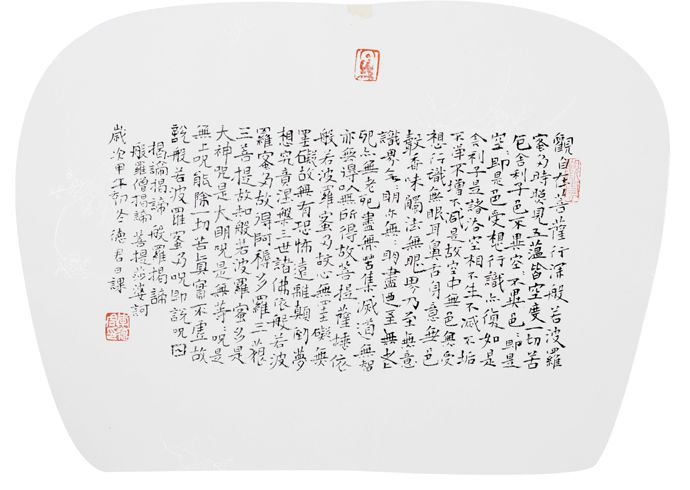 觀自在菩薩行深般若波羅
蜜多時照見五蘊皆空度一切苦
厄舍利子色不異空:不異色:即是
空即是色受想行識亦復如是
舍利子是諸法空相不生不滅不垢
不淨不增不減是故空中無色無受
想行識無眼耳鼻舌身意無色
聲香味觸法無眼界乃至無意
識界無:明亦無:明盡乃至無老
死亦無老死盡無苦集滅道無智
亦無得以無所得故菩提薩埵依
般若波羅蜜多故心無罣礙無
罣礙故無有恐怖遠離顛倒夢
想究竟涅槃三世諸佛依般若波
羅蜜多故得阿耨多羅三藐
三菩提故知般若波羅蜜多是
大神呪是大明呪是無等:呪是
無上呪能除一切苦真實不虛故
說般若波羅蜜多呪即說呪曰
揭諦揭諦般羅揭諦
般羅僧揭諦菩提莎婆訶
歲次甲午初冬德君日課